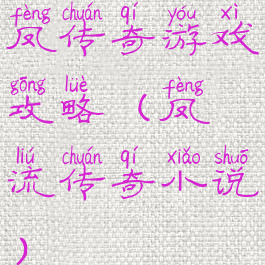 fèng chuán qí yóu xì
凤传奇游戏
gōng lüè fèng
攻略（凤
liú chuán qí xiǎo shuō
流传奇小说
）